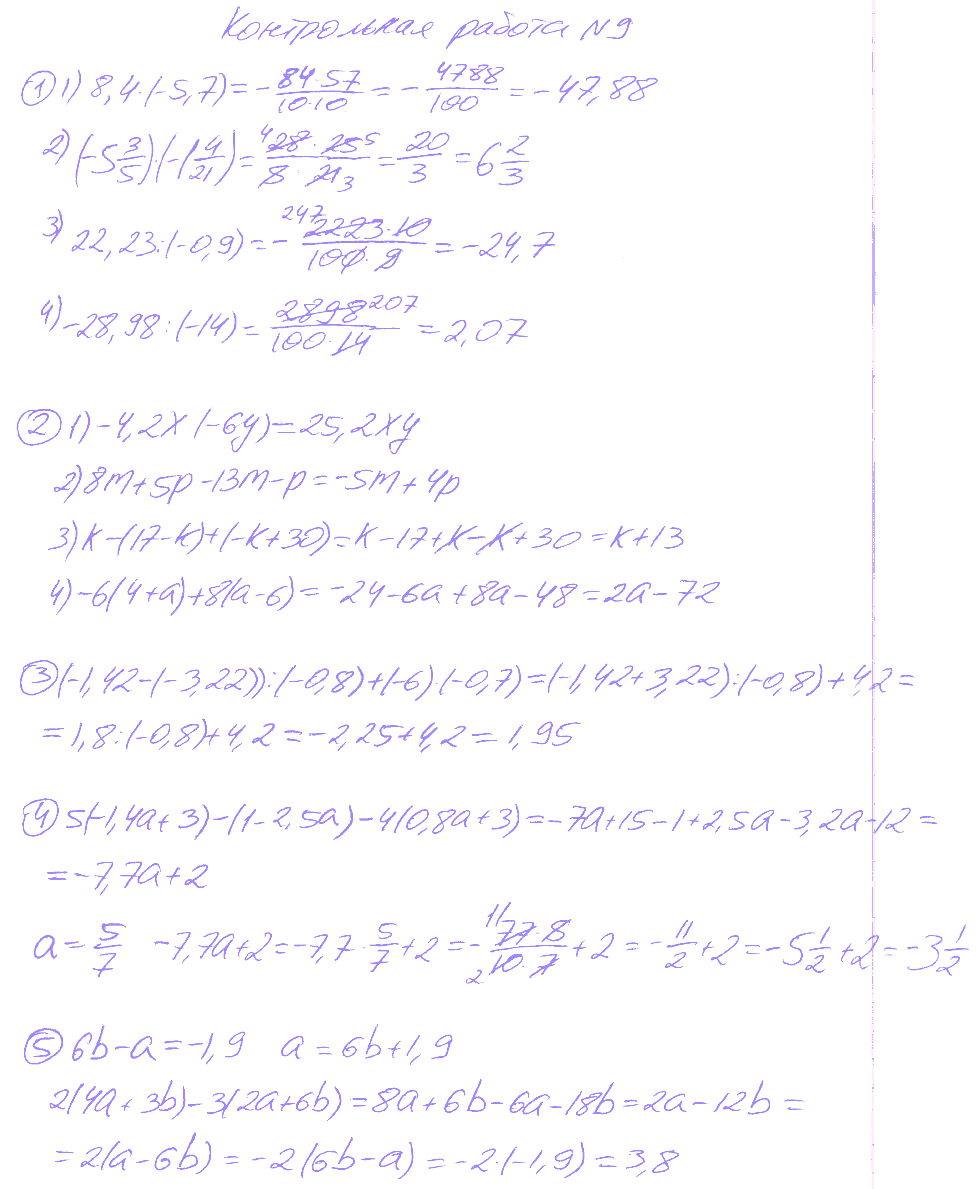 Контрольная работа N9
① 1) 8,4·(-5,7)=-84·57/10·10=-4788/100=-47,88
2) (-5 3/5)·(-1 4/21)=4 28·25 5/8·21 3=20/3=6 2/3
3) 22,23:(-0,9)=-247 2223·10/100·9=-24,7
4) -28,98:(-14)=2898 207/100·14=2,07
② 1) -4,2x(-6y)=25,2xy
2) 8m+5p-13m-p=-5m+4p
3) k-(17-k)+(-k+30)=k-17+k-k+30=k+13
4) -6(4+a)+8(a-6)=-24-6a+8a-48=2a-72
③ (-1,42-(-3,22)):(-0,8)+(-6)·(-0,7)=(-1,42+3,22):(-0,8)+4,2=
=1,8:(-0,8)+4,2=-2,25+4,2=1,95
④ 5(-1,4a+3)-(1-2,5a)-4(0,8a+3)=-7a+15-1+2,5a-3,2a-12=
=-7,7a+2
a=5/7 -7,7a+2=-7,7·5/7+2=-11 77·8/2 10·7+2=-11/2+2=-5 1/2+2=-3 1/2
⑤ 6b-a=-1,9 a=6b+1,9
2(4a+3b)-3(2a+6b)=8a+6b-6a-18b=2a-12b=
=2(a-6b)=-2(6b-a)=-2·(-1,9)=3,8